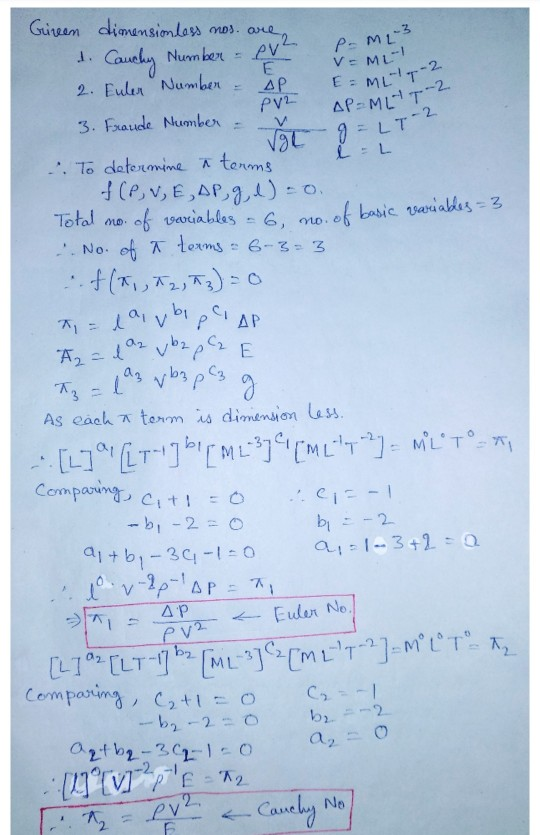 Given dimensionless nos. are
1. Cauchy Number = ρV²/E    ρ = ML⁻³
V = ML⁻¹
2. Euler Number = ΔP/ρV²    E = ML⁻¹T⁻²
ΔP = ML⁻¹T⁻²
3. Fraude Number = V/√gl    g = LT⁻²
l = L
∴ To determine π terms
f(ρ,V,E,ΔP,g,l) = 0.
Total no. of variables = 6, no. of basic variables = 3
∴ No. of π terms = 6-3 = 3
∴ f(π₁,π₂,π₃) = 0
π₁ = l^a₁ V^b₁ ρ^c₁ ΔP
π₂ = l^a₂ V^b₂ ρ^c₂ E
π₃ = l^a₃ V^b₃ ρ^c₃ g
As each π term is dimension less.
∴ [L]^a₁ [LT⁻¹]^b₁ [ML⁻³]^c₁ [ML⁻¹T⁻²] = M⁰L⁰T⁰ = π₁
Comparing, c₁+1 = 0    ∴ c₁ = -1
-b₁-2 = 0    b₁ = -2
a₁+b₁-3c₁-1 = 0    a₁ = 1-3+2 = 0
∴ l⁰ V⁻² ρ⁻¹ ΔP = π₁
⇒ π₁ = ΔP/ρV² ← Euler No.
[L]^a₂ [LT⁻¹]^b₂ [ML⁻³]^c₂ [ML⁻¹T⁻²] = M⁰L⁰T⁰ = π₂
Comparing, c₂+1 = 0    c₂ = -1
-b₂-2 = 0    b₂ = -2
a₂+b₂-3c₂-1 = 0    a₂ = 0
∴ [l]⁰ [V]⁻² ρ⁻¹ E = π₂
∴ π₂ = ρV²/E ← Cauchy No